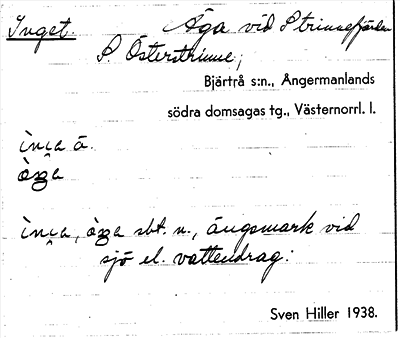 Inget. Äga vid Strinnefjärden
S. Österstrinne,
Bjärtrå s:n., Ångermanlands
södra domsagas tg., Västernorrl. l.
sbt. n., ängsmark vid
sjö el. vattendrag:
Sven Hiller 1938.